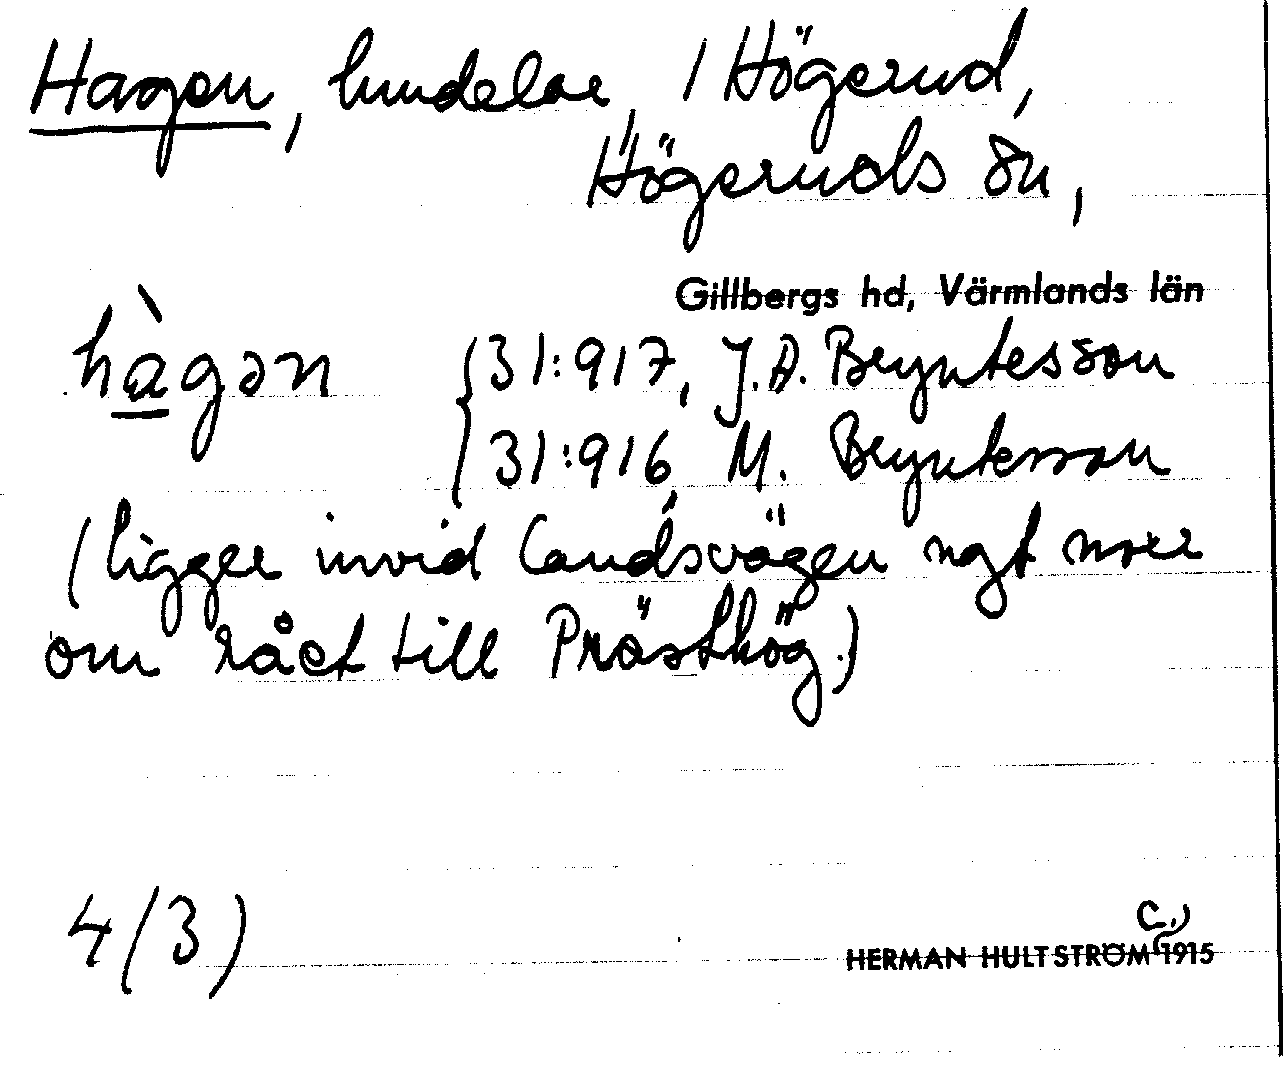 Hagen, hmdelar, / Högerud,
Högeruds sn,
Gillbergs hd, Värmlands län
hàgən {31:917, J.A. Beyntesson
31:916, M. Beyntesson
(ligger invid landsvägen ngt norr
om rået till Prästhög.)
4/3)
C.)
HERMAN HULTSTRÖM 1915